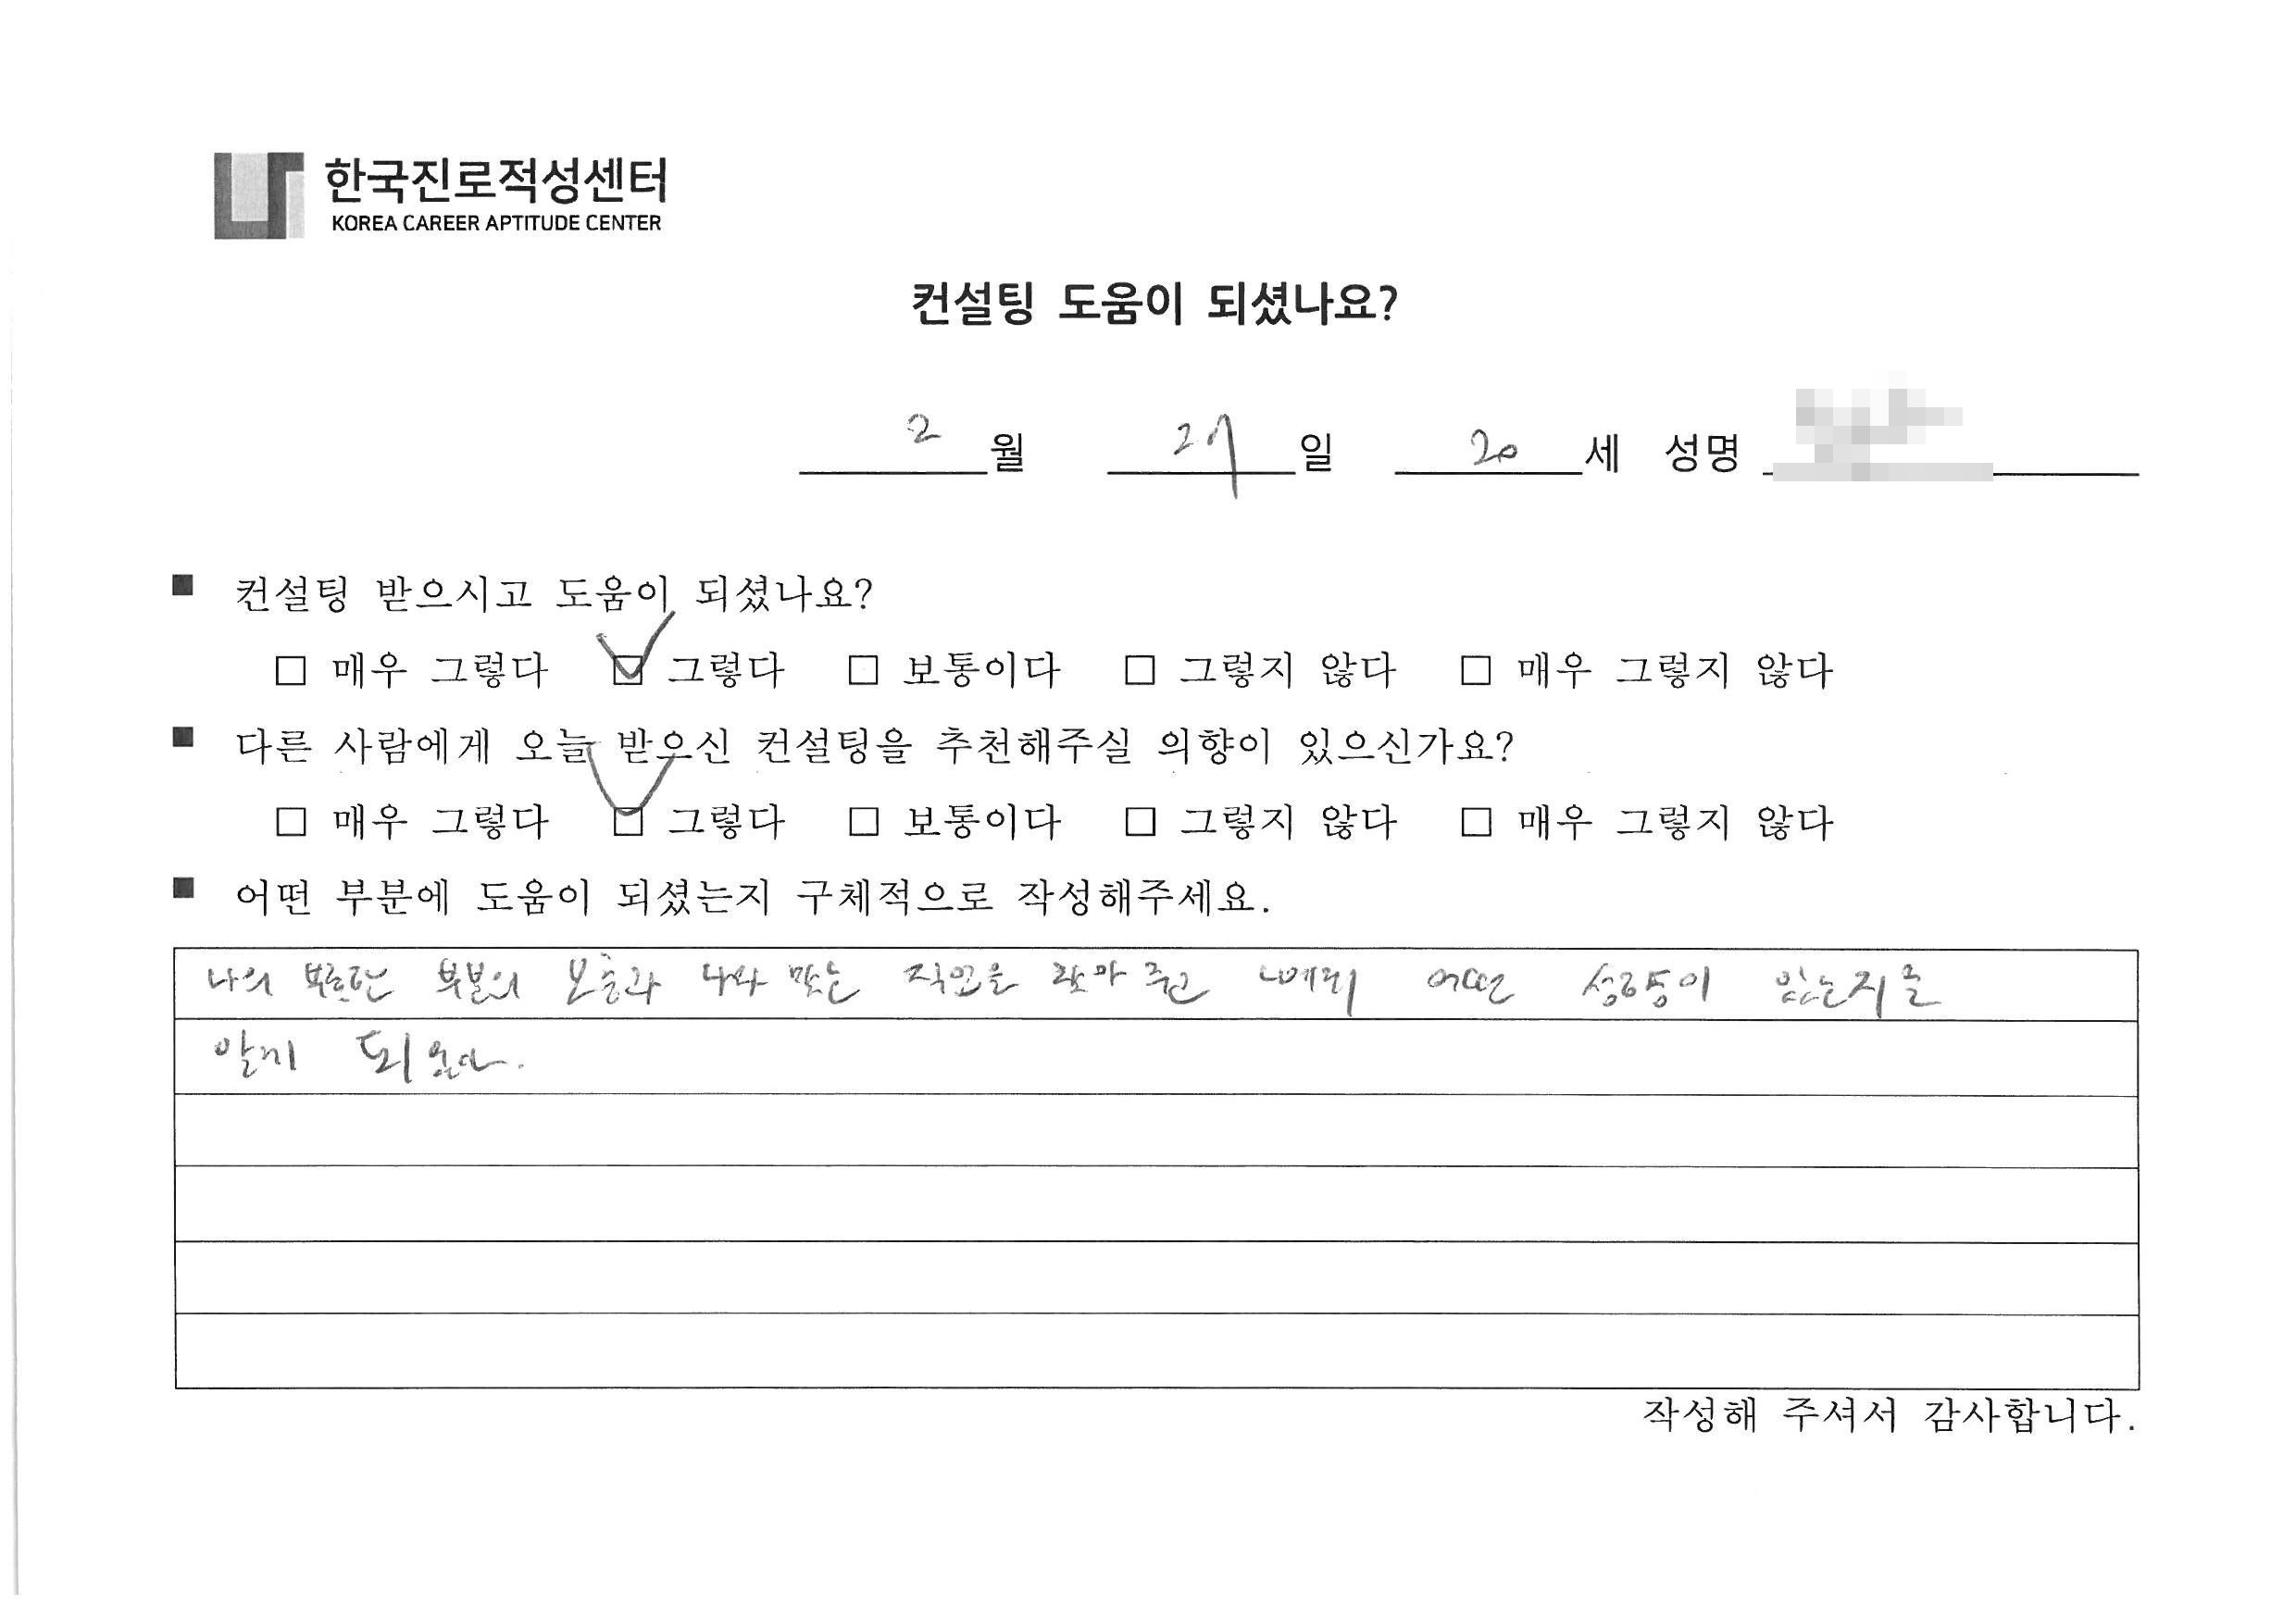 한국진로적성센터
KOREA CAREER APTITUDE CENTER
컨설팅 도움이 되셨나요?
2 월 27 일 20 세 성명
■ 컨설팅 받으시고 도움이 되셨나요?
□ 매우 그렇다 ☑ 그렇다 □ 보통이다 □ 그렇지 않다 □ 매우 그렇지 않다
■ 다른 사람에게 오늘 받으신 컨설팅을 추천해주실 의향이 있으신가요?
□ 매우 그렇다 ☑ 그렇다 □ 보통이다 □ 그렇지 않다 □ 매우 그렇지 않다
■ 어떤 부분에 도움이 되셨는지 구체적으로 작성해주세요.
나의 부족한 부분의 보충과 나와 맞는 직업을 찾아 주고 나에게 어떤 성향이 있는지를
알게 되었다.
작성해 주셔서 감사합니다.